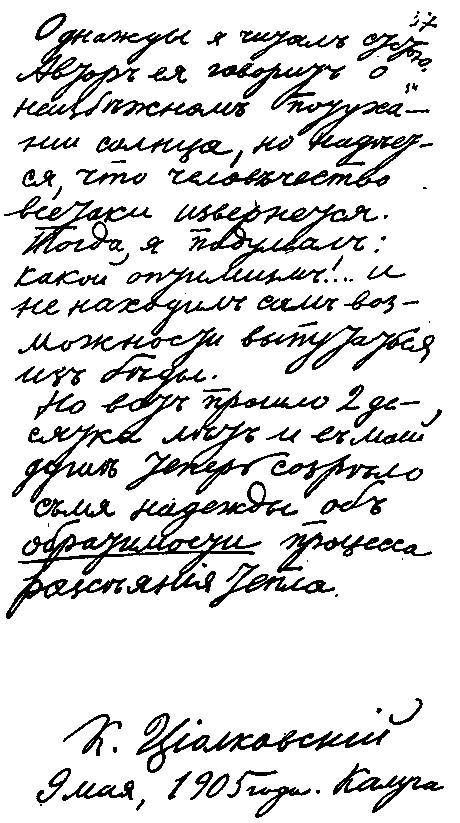 37
Однажды я читалъ статью.
Авторъ ея говоритъ о
неизбѣжномъ потуха-
нии солнца, но надѣет-
ся, что человѣчество
всетаки извернется.
Тогда, я подумалъ:
какой оптимизмъ!.. и
не находилъ самъ воз-
можности выпутаться
изъ бѣды.
Но вотъ прошло 2 де-
сятка лѣтъ и въ моей
душѣ теперь созрѣло
сѣмя надежды объ
обратимости процесса
разсѣянія тепла.
К. Ціолковскій
9 мая, 1905 года. Калуга